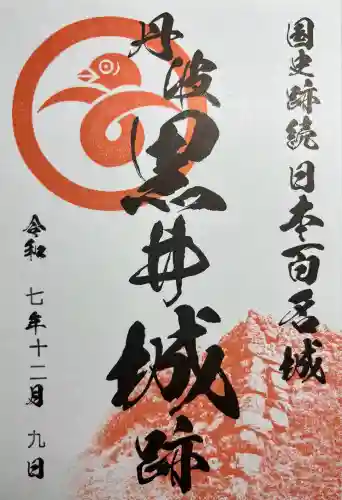 国史跡 続日本百名城
丹波 黒井城跡
令和 七年十二月 九日